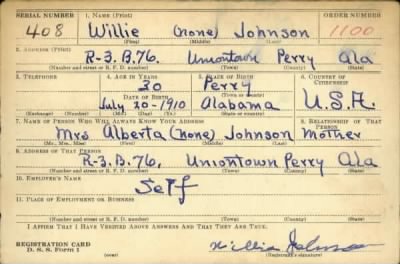 SERIAL NUMBER 1. NAME (Print) ORDER NUMBER
408 Willie (none) Johnson 1100
(First) (Middle) (Last)
2. ADDRESS (Print)
R-3. B.76. Uniontown Perry Ala
(Number and street or R. F. D. number) (Town) (County) (State)
3. TELEPHONE 4. AGE IN YEARS 5. PLACE OF BIRTH 6. COUNTRY OF CITIZENSHIP
30 Perry
(Town or county)
DATE OF BIRTH
July 20-1910 Alabama U.S.A.
(Exchange) (Number) (Mo.) (Day) (Yr.) (State or country)
7. NAME OF PERSON WHO WILL ALWAYS KNOW YOUR ADDRESS 8. RELATIONSHIP OF THAT PERSON
Mrs Alberta (none) Johnson Mother
(Mr., Mrs., Miss) (First) (Middle) (Last)
9. ADDRESS OF THAT PERSON
R-3. B.76. Uniontown Perry Ala
(Number and street or R. F. D. number) (Town) (County) (State)
10. EMPLOYER'S NAME
Self
11. PLACE OF EMPLOYMENT OR BUSINESS
(Number and street or R. F. D. number) (Town) (County) (State)
I AFFIRM THAT I HAVE VERIFIED ABOVE ANSWERS AND THAT THEY ARE TRUE.
REGISTRATION CARD
D. S. S. Form 1 (over) Willie Johnson
(Registrant's signature)